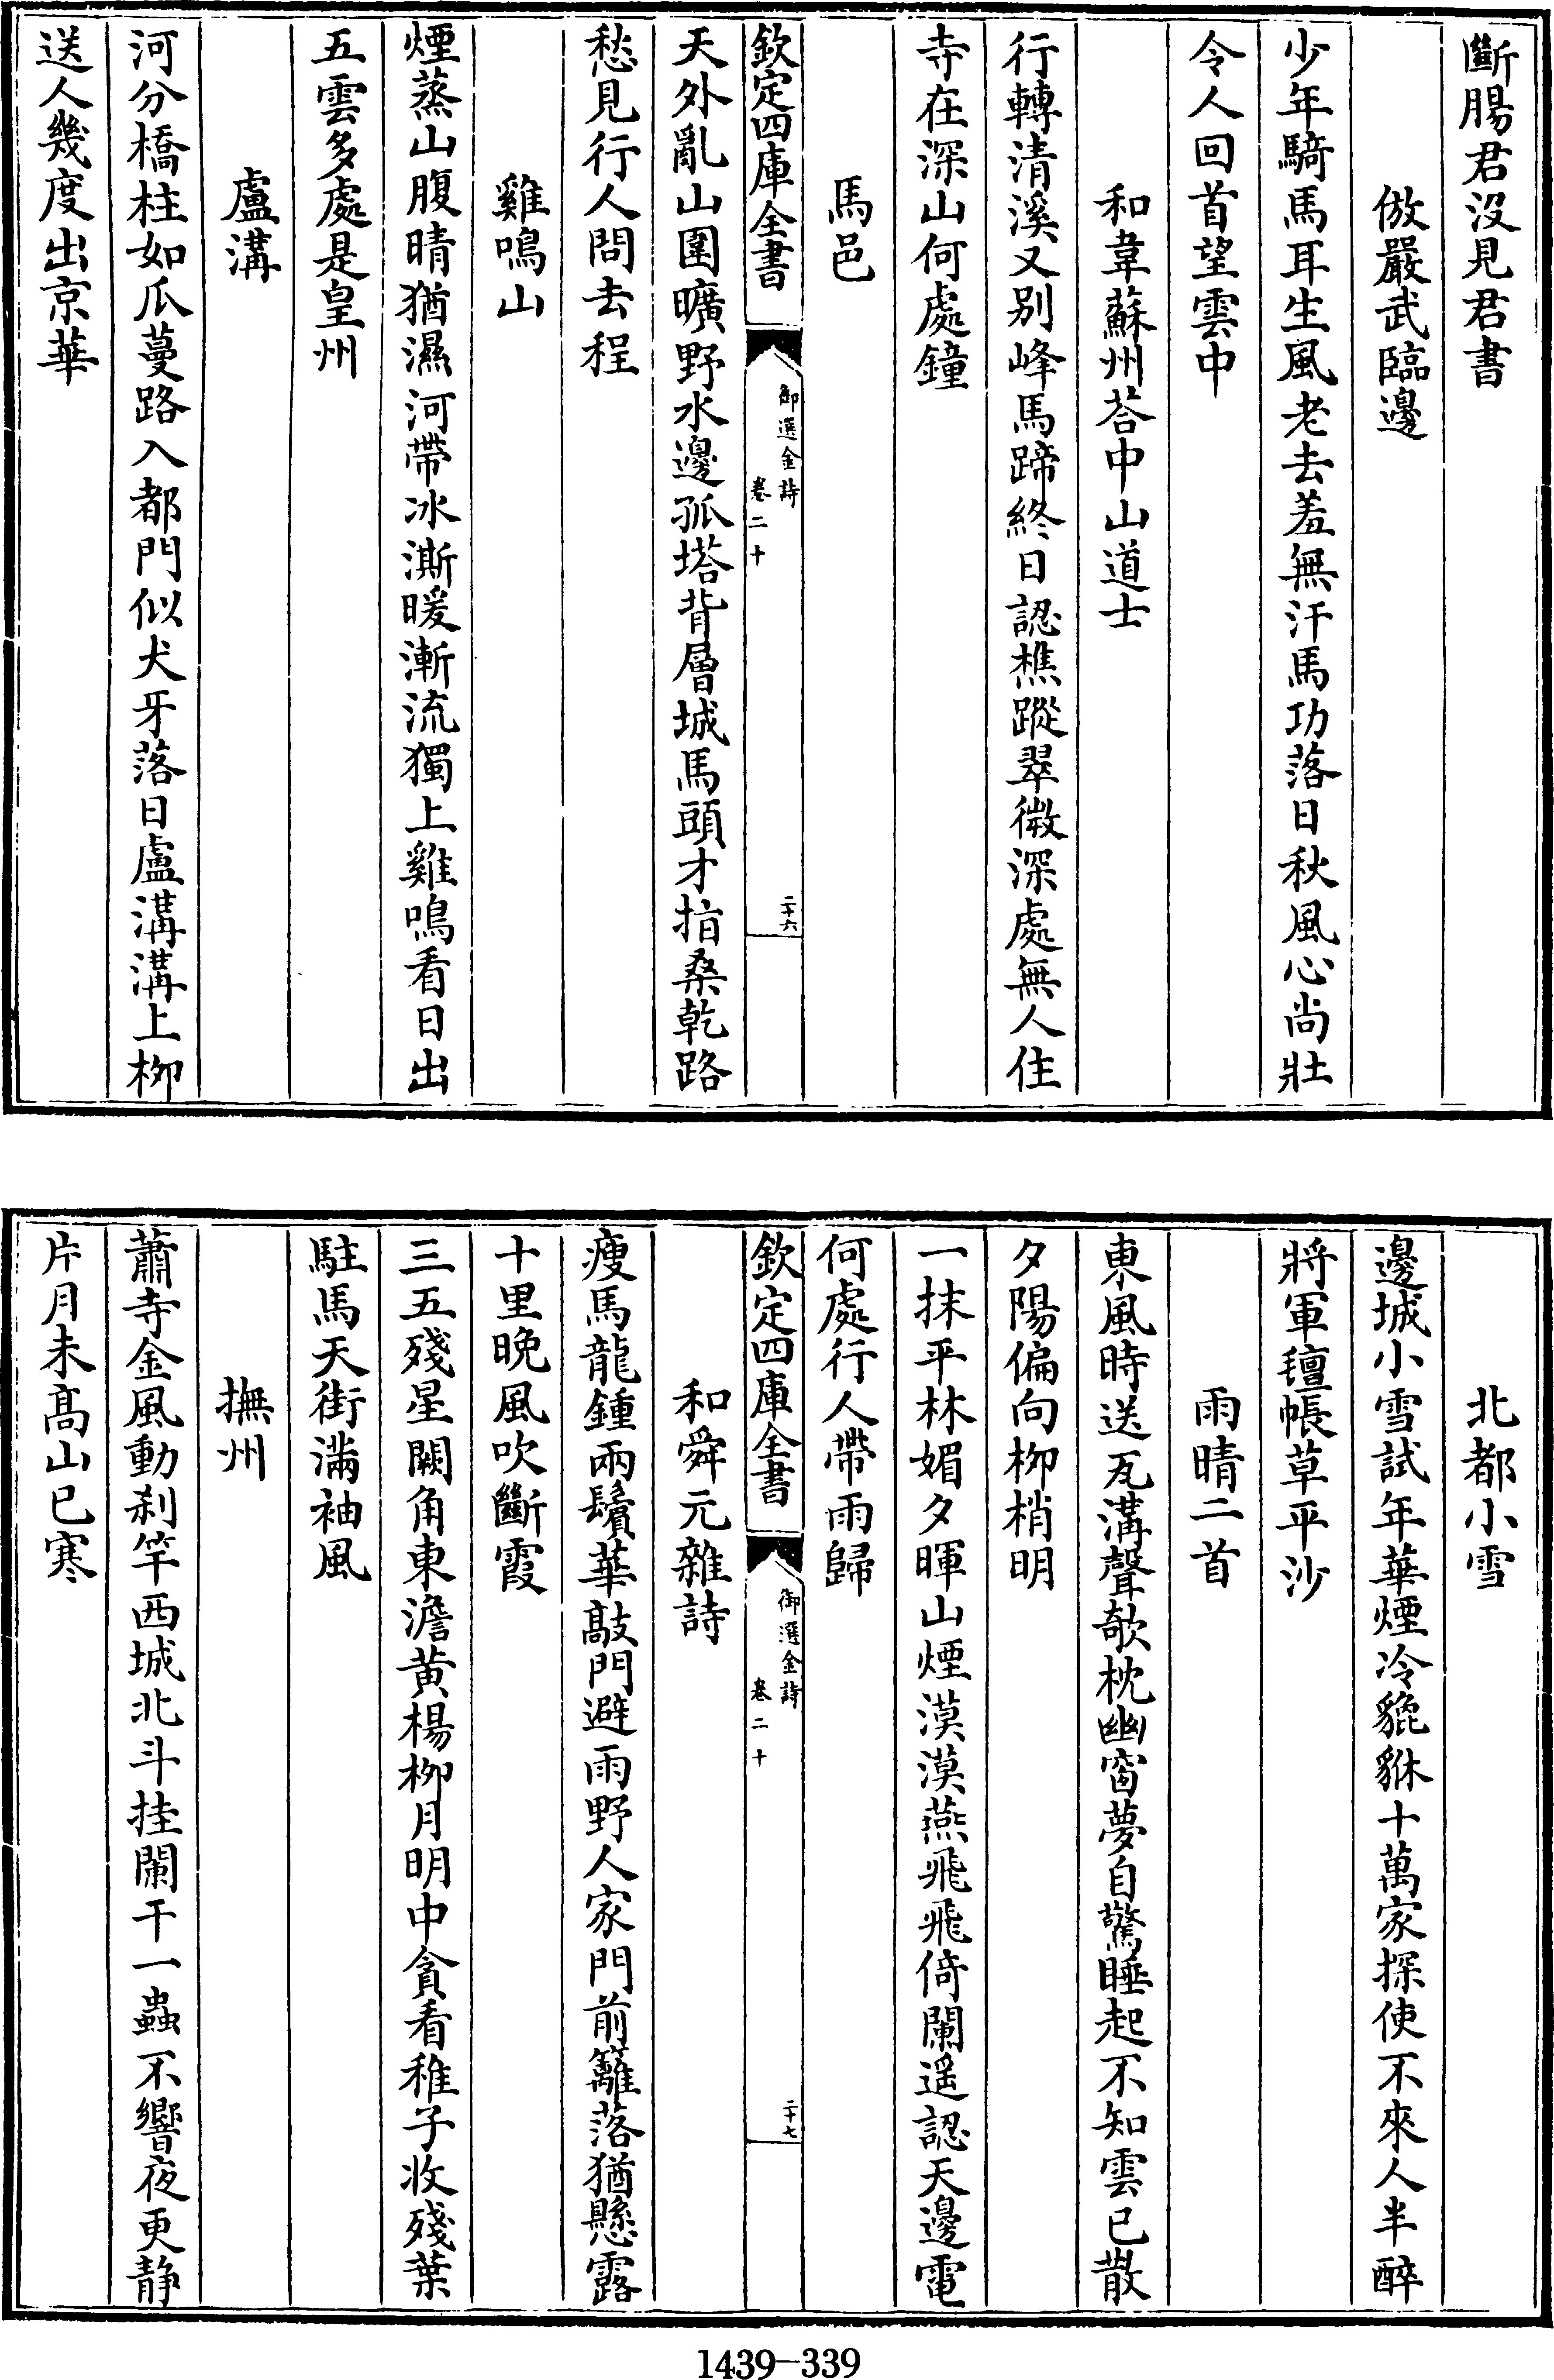 斷腸君沒見君書
倣嚴武臨邊
少年騎馬耳生風老去羞無汗馬功落日秋風心尚壯
令人回首望雲中
和韋蘇州荅中山道士
行轉清溪又别峰馬蹄終日認樵蹤翠微深處無人住
寺在深山何處鐘
馬邑
欽定四庫全書
御選金詩
卷二十
二十六
天外亂山圍曠野水邊孤塔背層城馬頭才指桑乾路
愁見行人問去程
雞鳴山
煙蒸山腹晴猶濕河帶冰澌暖漸流獨上雞鳴看日出
五雲多處是皇州
盧溝
河分橋柱如瓜蔓路入都門似犬牙落日盧溝溝上栁
送人幾度出京華
北都小雪
邊城小雪試年華煙冷貔貅十萬家探使不來人半醉
將軍氊帳草平沙
雨晴二首
東風時送瓦溝聲欹枕幽窗夢自驚睡起不知雲已散
夕陽偏向栁梢明
一抹平林媚夕暉山煙漠漠燕飛飛倚闌遥認天邊電
何處行人帶雨歸
欽定四庫全書
御選金詩
卷二十
二十七
和舜元雜詩
瘦馬龍鍾兩鬢華敲門避雨野人家門前籬落猶懸露
十里晚風吹斷霞
三五殘星闕角東澹黄楊栁月明中貪看稚子收殘葉
駐馬天街滿袖風
撫州
蕭寺金風動刹竿西城北斗挂闌干一蟲不響夜更静
片月未髙山已寒
1439—339